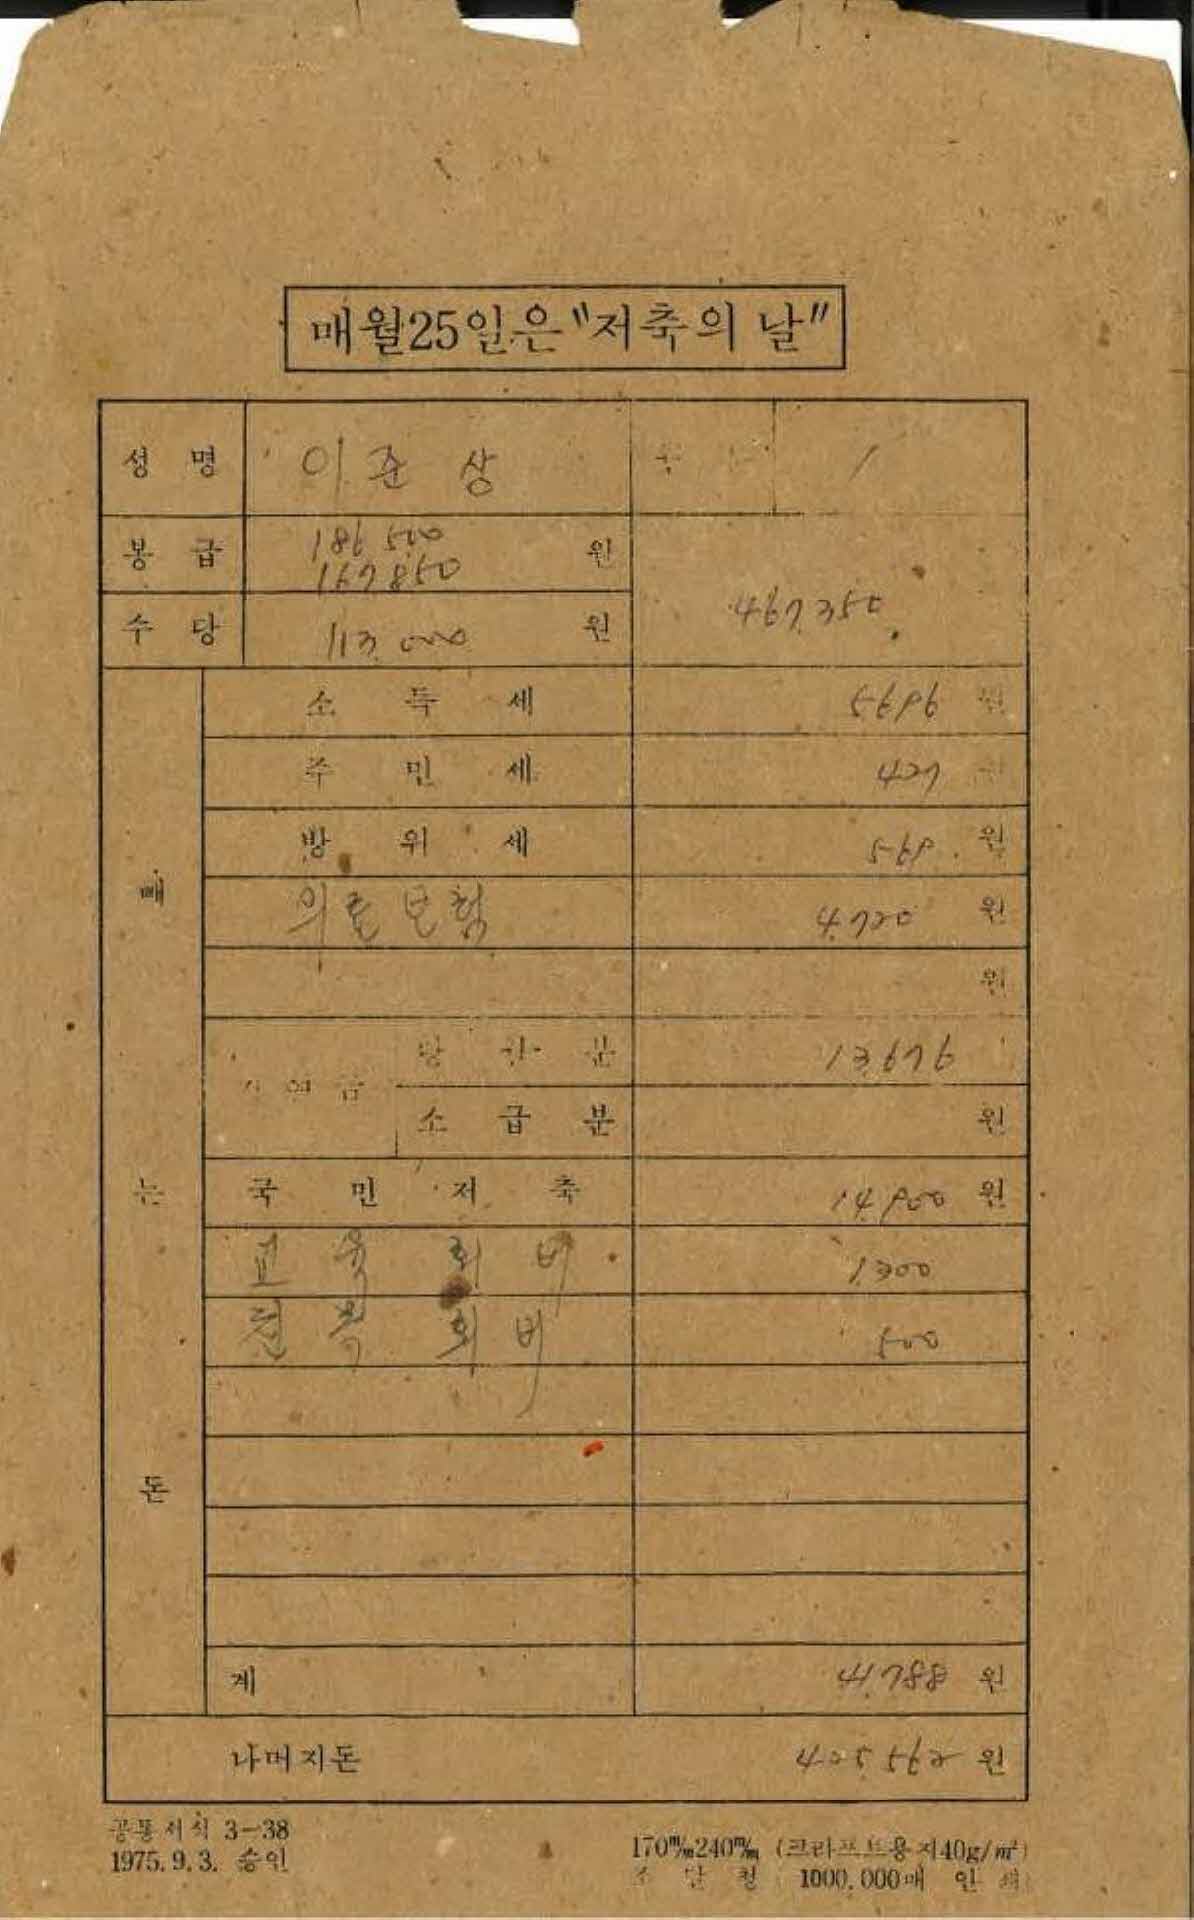 매월25일은 "저축의 날"
성 명 이준상
봉 급 186,500 원
167,850
수 당 113,000 원
467,350
빼는돈
소 득 세 5696 원
주 민 세 427
방 위 세 569 원
의료보험 4,720 원
원
기여금 당월분 13,676
소 급 분 원
국 민 저 축 14,900 원
교육회비 1,300
친목회비 500
계 41,788 원
나머지돈 425,562 원
공통서식 3-38
1975.9.3. 승인
170㎜240㎜ (크라프트용지40g/㎡)
조 달 청 1000,000매 인 쇄